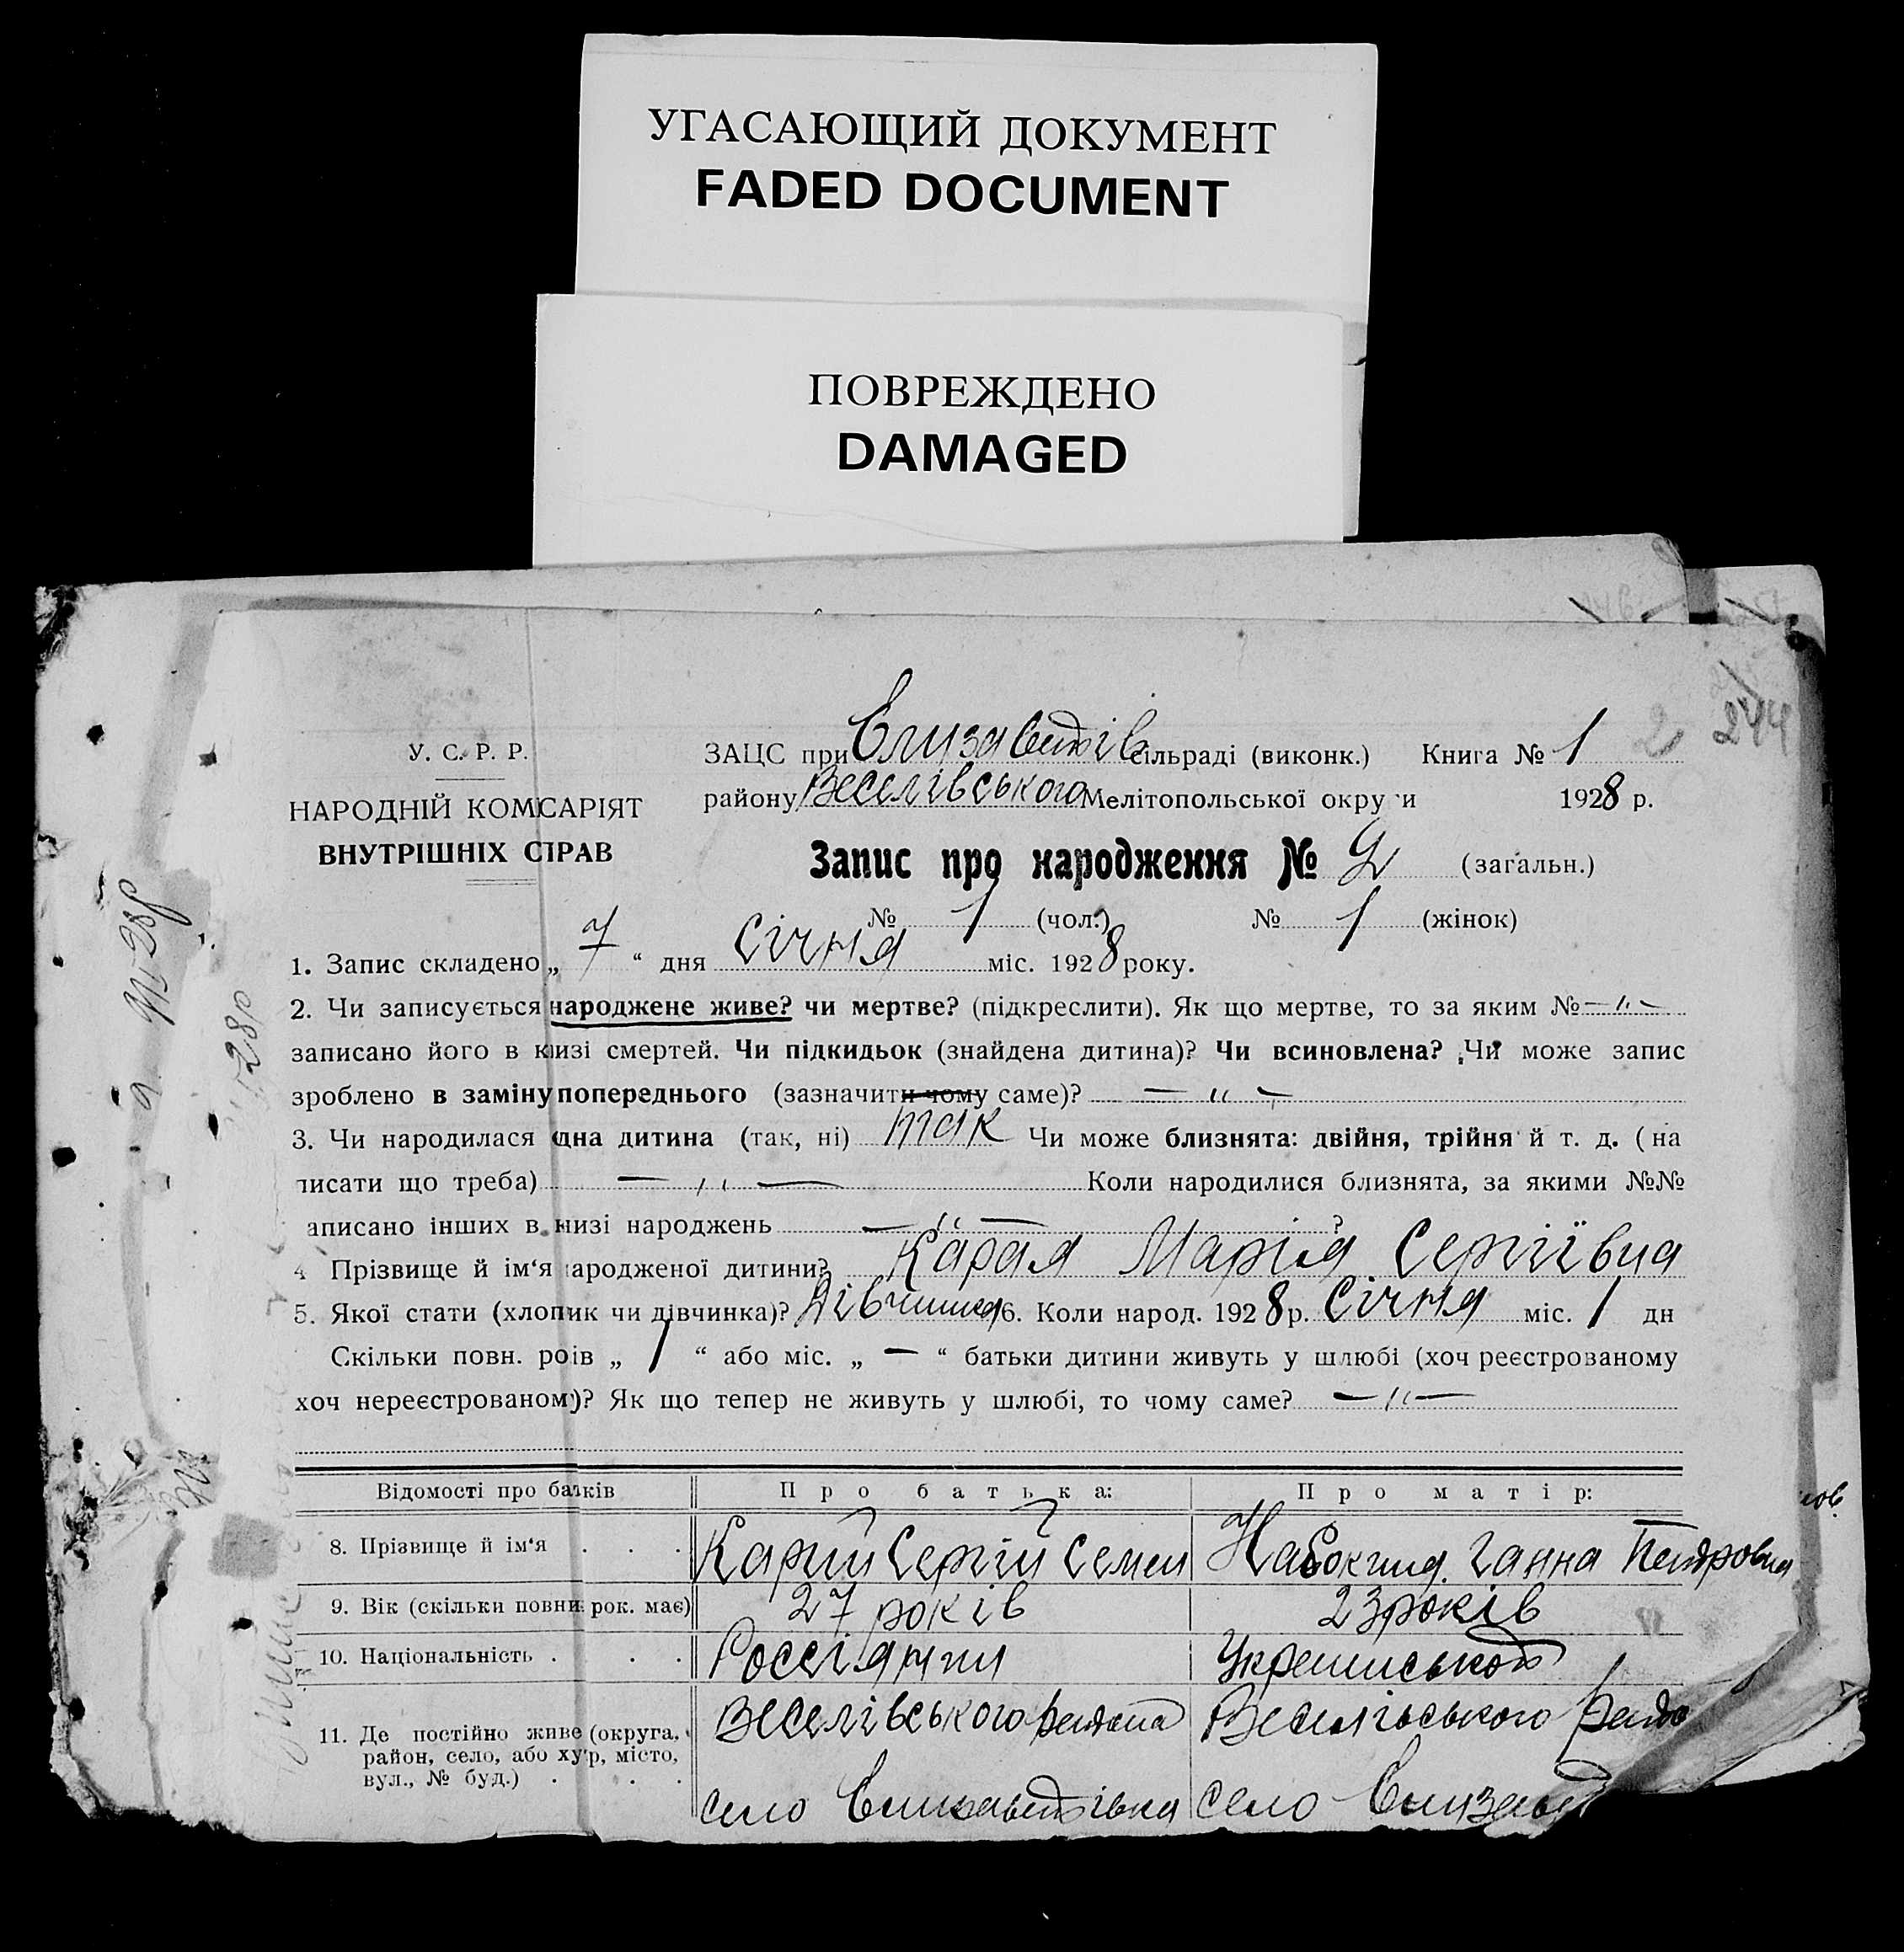 УГАСАЮЩИЙ ДОКУМЕНТ
FADED DOCUMENT
ПОВРЕЖДЕНО
DAMAGED
2 244
У. С. Р. Р.
НАРОДНІЙ КОМІСАРІЯТ
ВНУТРІШНІХ СПРАВ
ЗАЦС при Єлизаветів сільраді (виконк.) Книга № 1
району Веселівського Мелітопольської округи 1928 р.
Запис про народження № 2 (загальн.)
№ 1 (чол.) № 1 (жінок)
1. Запис складено „ 7 “ дня Січня міс. 1928 року.
2. Чи записується народжене живе? чи мертве? (підкреслити). Як що мертве, то за яким № — „ —
записано його в книзі смертей. Чи підкидьок (знайдена дитина)? Чи всиновлена? Чи може запис
зроблено в заміну попереднього (зазначити чому саме)? — „ —
3. Чи народилася одна дитина (так, ні) так Чи може близнята: двійня, трійня й т. д. (на
писати що треба) — „ — Коли народилися близнята, за якими №№
аписано інших в книзі народжень — „ — ?
4 Прізвище й ім‘я народженої дитини? Карая Марія Сергіївна
5. Якої стати (хлопчик чи дівчинка)? Дівчинка 6. Коли народ. 1928 р. Січня міс. 1 дн
Скільки повн. років „ 1 “ або міс. „ — “ батьки дитини живуть у шлюбі (хоч реєстрованому
хоч нереєстрованому)? Як що тепер не живуть у шлюбі, то чому саме? — „ —
Відомості про батьків Про батька: Про матір:
8. Прізвище й ім‘я . . . Карий Сергій Семен Ганна Петровна
9. Вік (скільки повних рок. має) 27 років 23 років
10. Національність . . . Россіянин
11. Де постійно живе (округа,
район, село, або хутір, місто,
вул., № буд.) . . .
Веселівського района Веселівського
село Єлизаветівка село Єлизавет